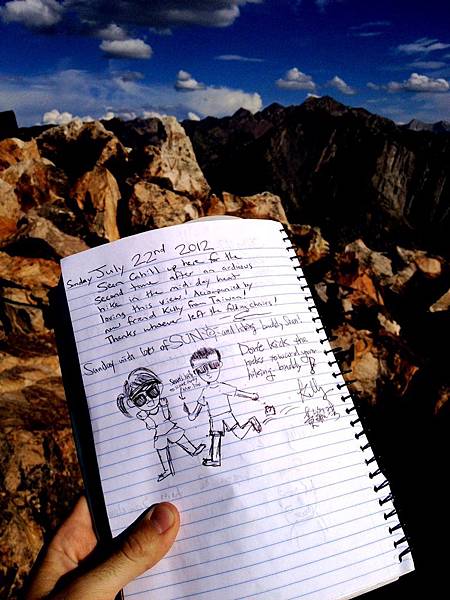 Sunday July 22nd 2012
Sean Cahill up here for the
second time after an arduous
hike in the mid day heat
loving this view! Accompanied by
new friend Kelly from Taiwan
Thanks whoever left the folding chairs!
Sunday with lots of SUN and hiking buddy Sean!
Don't kick the
rocks toward your
hiking buddy
Kelly